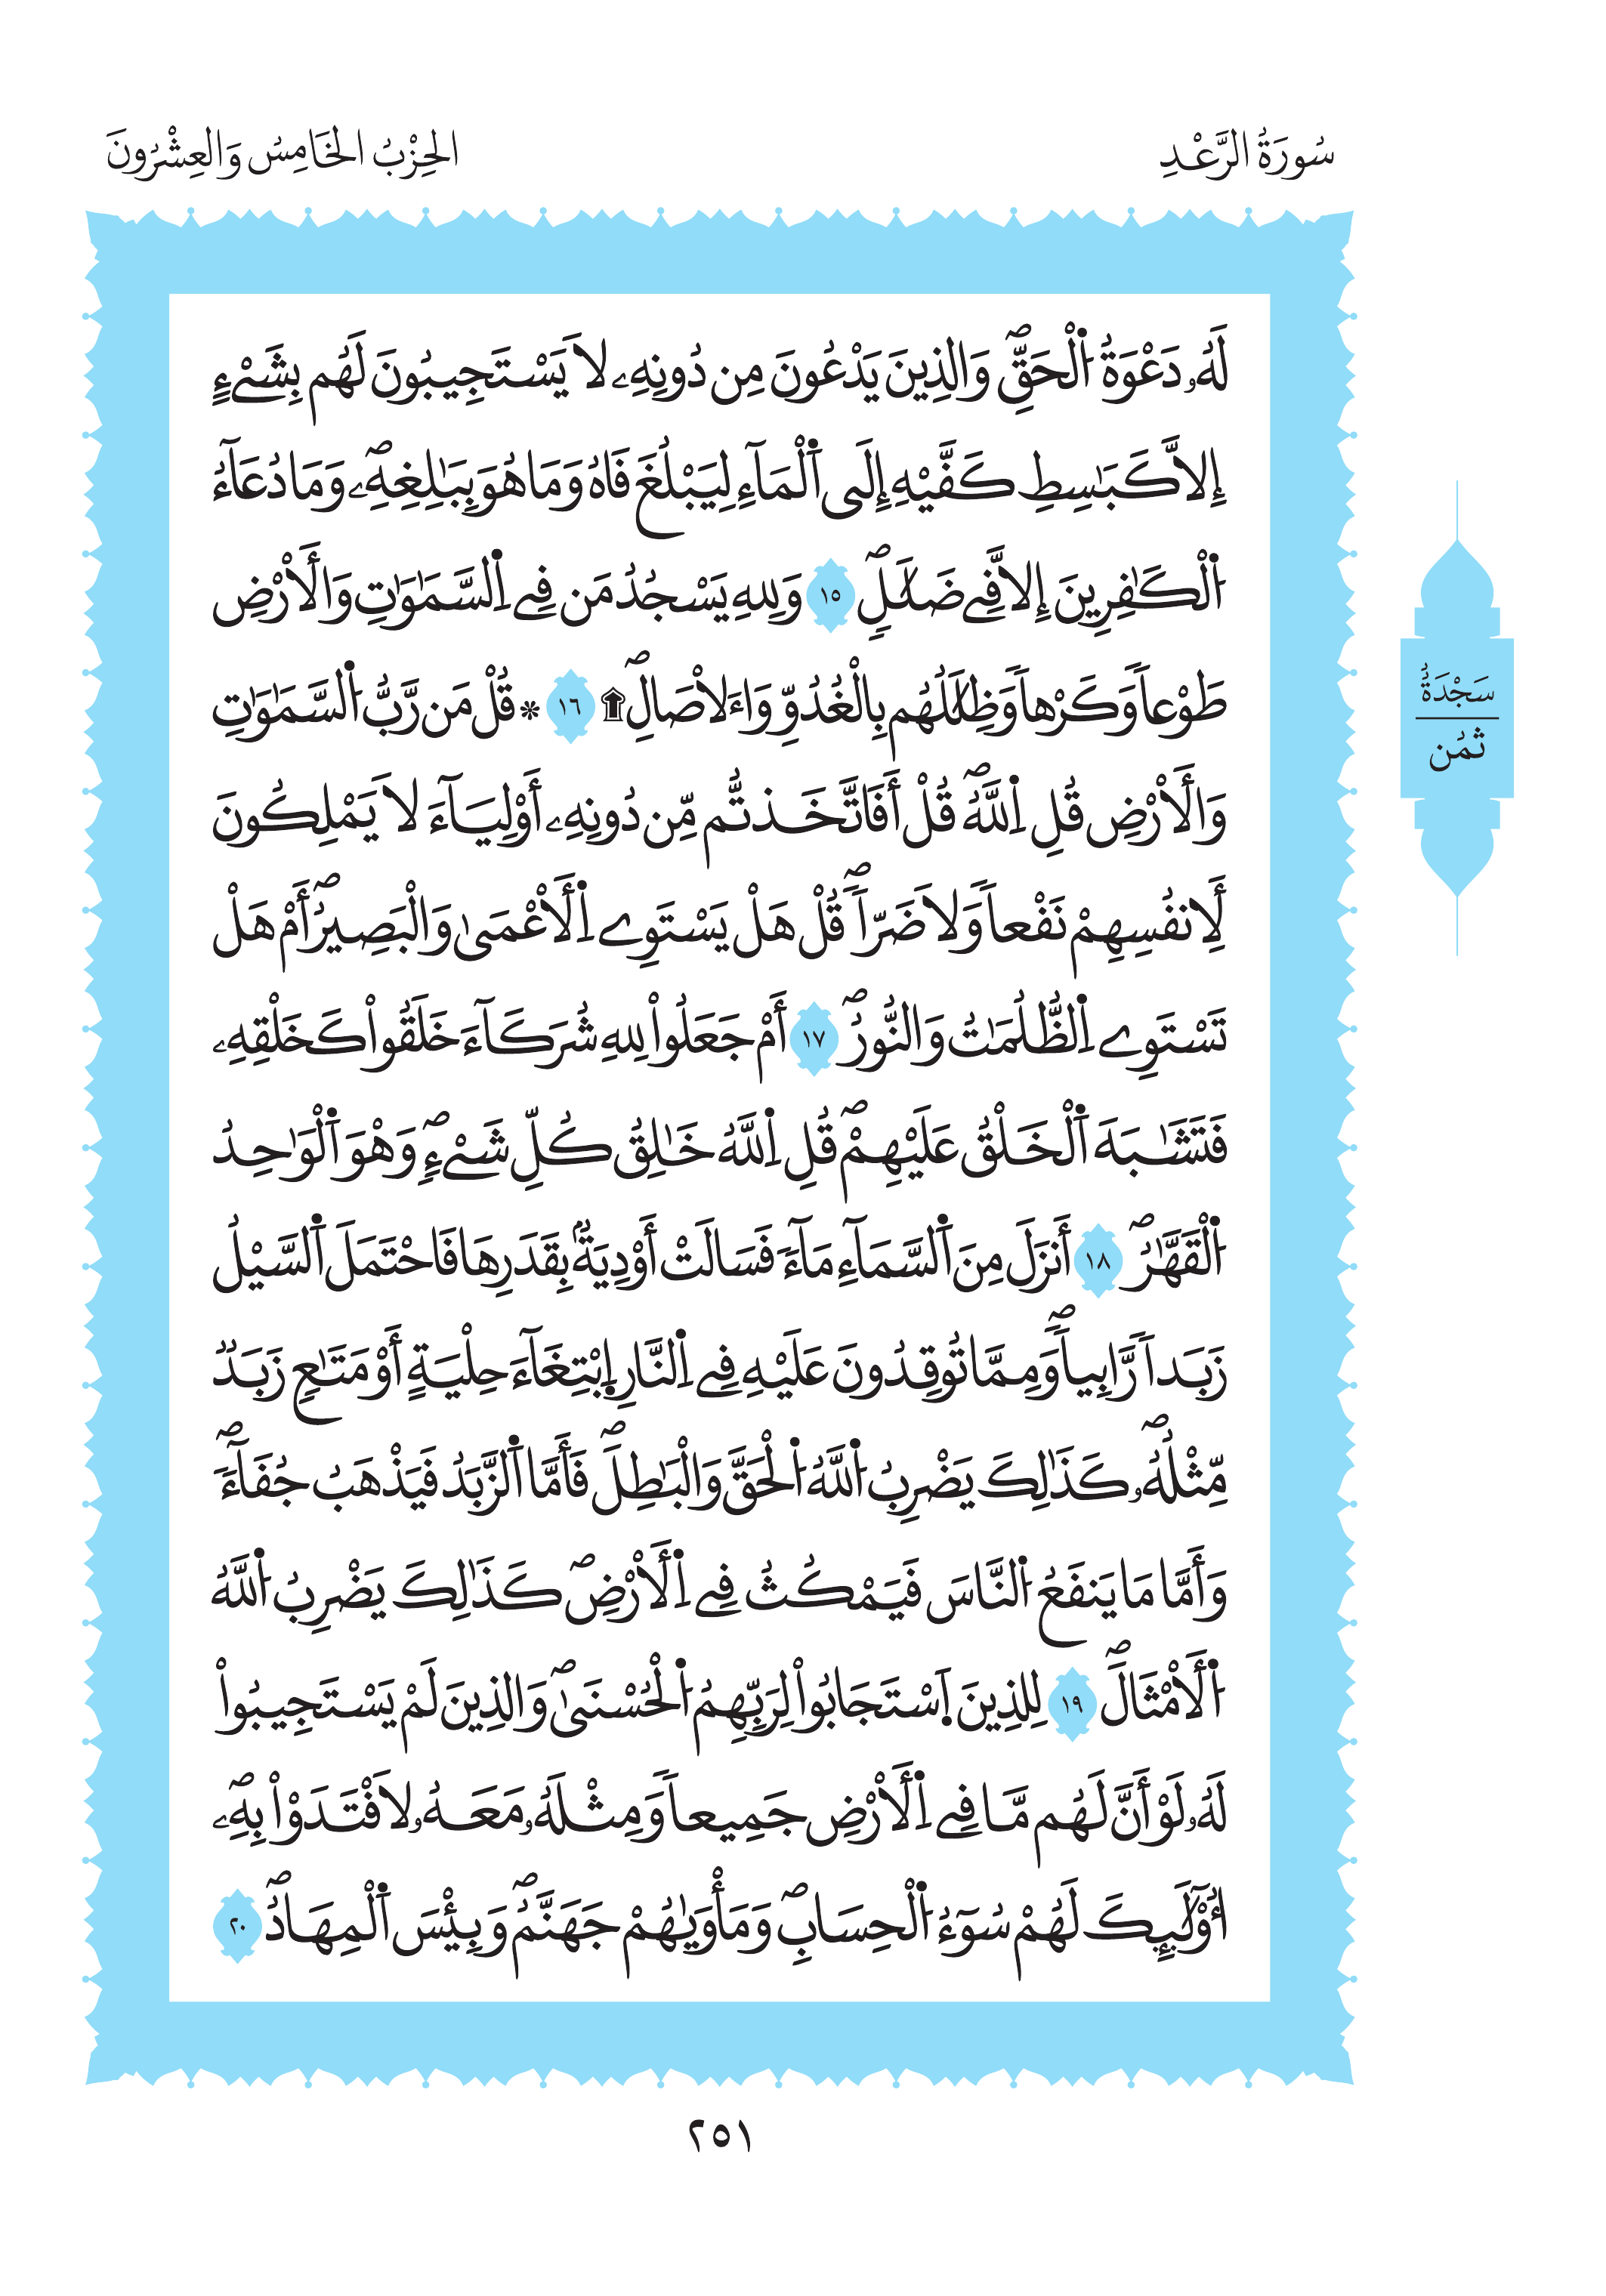 سُورَةُ الرَّعْدِ
الحِزْبُ الخَامِسُ وَالعِشْرُونَ
لَهُۥ دَعْوَةُ اُ۬لْحَقِّۖ وَالذِينَ يَدْعُونَ مِن دُونِهِۦ لَا يَسْتَجِيبُونَ لَهُم بِشَےْءٍ
اِلَّا كَبَٰسِطِ كَفَّيْهِ إِلَى اَ۬لْمَآءِ لِيَبْلُغَ فَاهُ وَمَا هُوَ بِبَٰلِغِهِۦۖ وَمَا دُعَآءُ
اُ۬لْكَٰفِرِينَ إِلَّا فِے ضَلَٰلٖۖ ١٥ وَلِلهِ يَسْجُدُ مَن فِے اِ۬لسَّمَٰوَٰتِ وَالَارْضِ
طَوْعاٗ وَكَرْهاٗ وَظِلَٰلُهُم بِالْغُدُوِّ وَالَاصَالِۖ ۩ ١٦ * قُلْ مَن رَّبُّ اُ۬لسَّمَٰوَٰتِ
وَالَارْضِ قُلِ اِ۬للَّهُۖ قُلْ أَفَاتَّخَذتُّم مِّن دُونِهِۦ أَوْلِيَآءَ لَا يَمْلِكُونَ
لِأَنفُسِهِمْ نَفْعاٗ وَلَا ضَرّاٗۖ قُلْ هَلْ يَسْتَوِے اِ۬لَاعْمَىٰ وَالْبَصِيرُۖ أَمْ هَلْ
تَسْتَوِے اِ۬لظُّلُمَٰتُ وَالنُّورُۖ ١٧ أَمْ جَعَلُواْ لِلهِ شُرَكَآءَ خَلَقُواْ كَخَلْقِهِۦ
فَتَشَٰبَهَ اَ۬لْخَلْقُ عَلَيْهِمْۖ قُلِ اِ۬للَّهُ خَٰلِقُ كُلِّ شَےْءٖۖ وَهْوَ اَ۬لْوَٰحِدُ
اُ۬لْقَهَّٰرُۖ ١٨ أَنزَلَ مِنَ اَ۬لسَّمَآءِ مَآءٗ فَسَالَتْ أَوْدِيَةُۢ بِقَدَرِهَا فَاحْتَمَلَ اَ۬لسَّيْلُ
زَبَداٗ رَّابِياٗۖ وَمِمَّا تُوقِدُونَ عَلَيْهِ فِے اِ۬لنَّارِ اِ۪بْتِغَآءَ حِلْيَةٍ أَوْ مَتَٰعٖ زَبَدٞ
مِّثْلُهُۥۖ كَذَٰلِكَ يَضْرِبُ اُ۬للَّهُ اُ۬لْحَقَّ وَالْبَٰطِلَۖ فَأَمَّا اَ۬لزَّبَدُ فَيَذْهَبُ جُفَآءٗۖ
وَأَمَّا مَا يَنفَعُ اُ۬لنَّاسَ فَيَمْكُثُ فِے اِ۬لَارْضِۖ كَذَٰلِكَ يَضْرِبُ اُ۬للَّهُ
اُ۬لَامْثَالَۖ ١٩ لِلذِينَ اَ۪سْتَجَابُواْ لِرَبِّهِمُ اُ۬لْحُسْنَىٰۖ وَالذِينَ لَمْ يَسْتَجِيبُواْ
لَهُۥ لَوْ أَنَّ لَهُم مَّا فِے اِ۬لَارْضِ جَمِيعاٗ وَمِثْلَهُۥ مَعَهُۥ لَافْتَدَوْاْ بِهِۦۖ
أُوْلَٰٓئِكَ لَهُمْ سُوٓءُ اُ۬لْحِسَابِۖ وَمَأْوَيٰهُمْ جَهَنَّمُۖ وَبِئْسَ اَ۬لْمِهَادُۖ ٢٠
سَجْدَةُ
ثُمُن
٢٥١